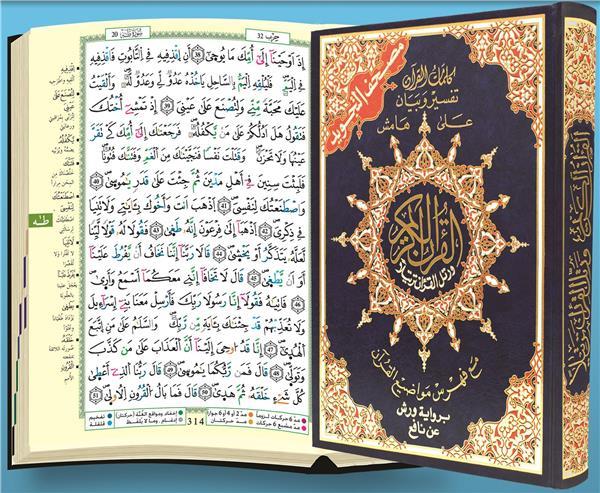 حزب 32
سورة طه 20
إِذَ اَوْحَيْنَآ إِلَىٰٓ أُمِّكَ مَا يُوحَىٰٓ 38 أَنِ اِقْذِفِيهِ فِى اِلتَّابُوتِ فَاقْذِفِيهِ
فِى اِلْيَمِّ فَلْيُلْقِهِ اِلْيَمُّ بِالسَّاحِلِ يَاخُذْهُ عَدُوٌّ لِّى وَعَدُوٌّ لَّهُۥ وَأَلْقَيْتُ
عَلَيْكَ مَحَبَّةً مِّنِّى وَلِتُصْنَعَ عَلَىٰ عَيْنِىَ 39 إِذْ تَمْشِىٓ أُخْتُكَ
فَتَقُولُ هَلَ اَدُلُّكُمْ عَلَىٰ مَنْ يَّكْفُلُهُۥ فَرَجَعْنَٰكَ إِلَىٰٓ أُمِّكَ كَىْ تَقَرَّ
عَيْنُهَا وَلَا تَحْزَنَ وَقَتَلْتَ نَفْسًا فَنَجَّيْنَٰكَ مِنَ اَلْغَمِّ وَفَتَنَّٰكَ فُتُونًا
فَلَبِثْتَ سِنِينَ فِىٓ أَهْلِ مَدْيَنَ ثُمَّ جِئْتَ عَلَىٰ قَدَرٍ يَٰمُوسَىٰ 40
وَاصْطَنَعْتُكَ لِنَفْسِىَ 41 اَذْهَبَ اَنتَ وَأَخُوكَ بِـَٔايَٰتِى وَلَا تَنِيَا
فِى ذِكْرِىَ 42 اَذْهَبَآ إِلَىٰ فِرْعَوْنَ إِنَّهُۥ طَغَىٰ 43 فَقُولَا لَهُۥ قَوْلًا لَّيِّنًا
لَّعَلَّهُۥ يَتَذَكَّرُ أَوْ يَخْشَىٰ 44 قَالَا رَبَّنَآ إِنَّنَا نَخَافُ أَنْ يَّفْرُطَ عَلَيْنَآ
أَوَ اَنْ يَّطْغَىٰ 45 قَالَ لَا تَخَافَآ إِنَّنِى مَعَكُمَآ أَسْمَعُ وَأَرَىٰ
46 فَاتِيَٰهُ فَقُولَآ إِنَّا رَسُولَا رَبِّكَ فَأَرْسِلْ مَعَنَا بَنِىٓ إِسْرَآءِيلَ
وَلَا تُعَذِّبْهُمْ قَدْ جِئْنَٰكَ بِـَٔايَةٍ مِّن رَّبِّكَ وَالسَّلَٰمُ عَلَىٰ مَنِ اِتَّبَعَ
اَلْهُدَىٰٓ 47 إِنَّا قَدُ اُوحِىَ إِلَيْنَآ أَنَّ اَلْعَذَابَ عَلَىٰ مَن كَذَّبَ
وَتَوَلَّىٰ 48 قَالَ فَمَن رَّبُّكُمَا يَٰمُوسَىٰ 49 قَالَ رَبُّنَا اَلَّذِىٓ أَعْطَىٰ
كُلَّ شَىْءٍ خَلْقَهُۥ ثُمَّ هَدَىٰ 50 قَالَ فَمَا بَالُ اُلْقُرُونِ اِلُاولَىٰ 51
طه
314
مصحف التجويد
كلمات القرآن
تفسير وبيان
على هامش
القرآن الكريم
ورتل القرآن ترتيلا
مع فهرس مواضيع القرآن
برواية ورش
عن نافع
القرآن الكريم ورتل القرآن ترتيلا